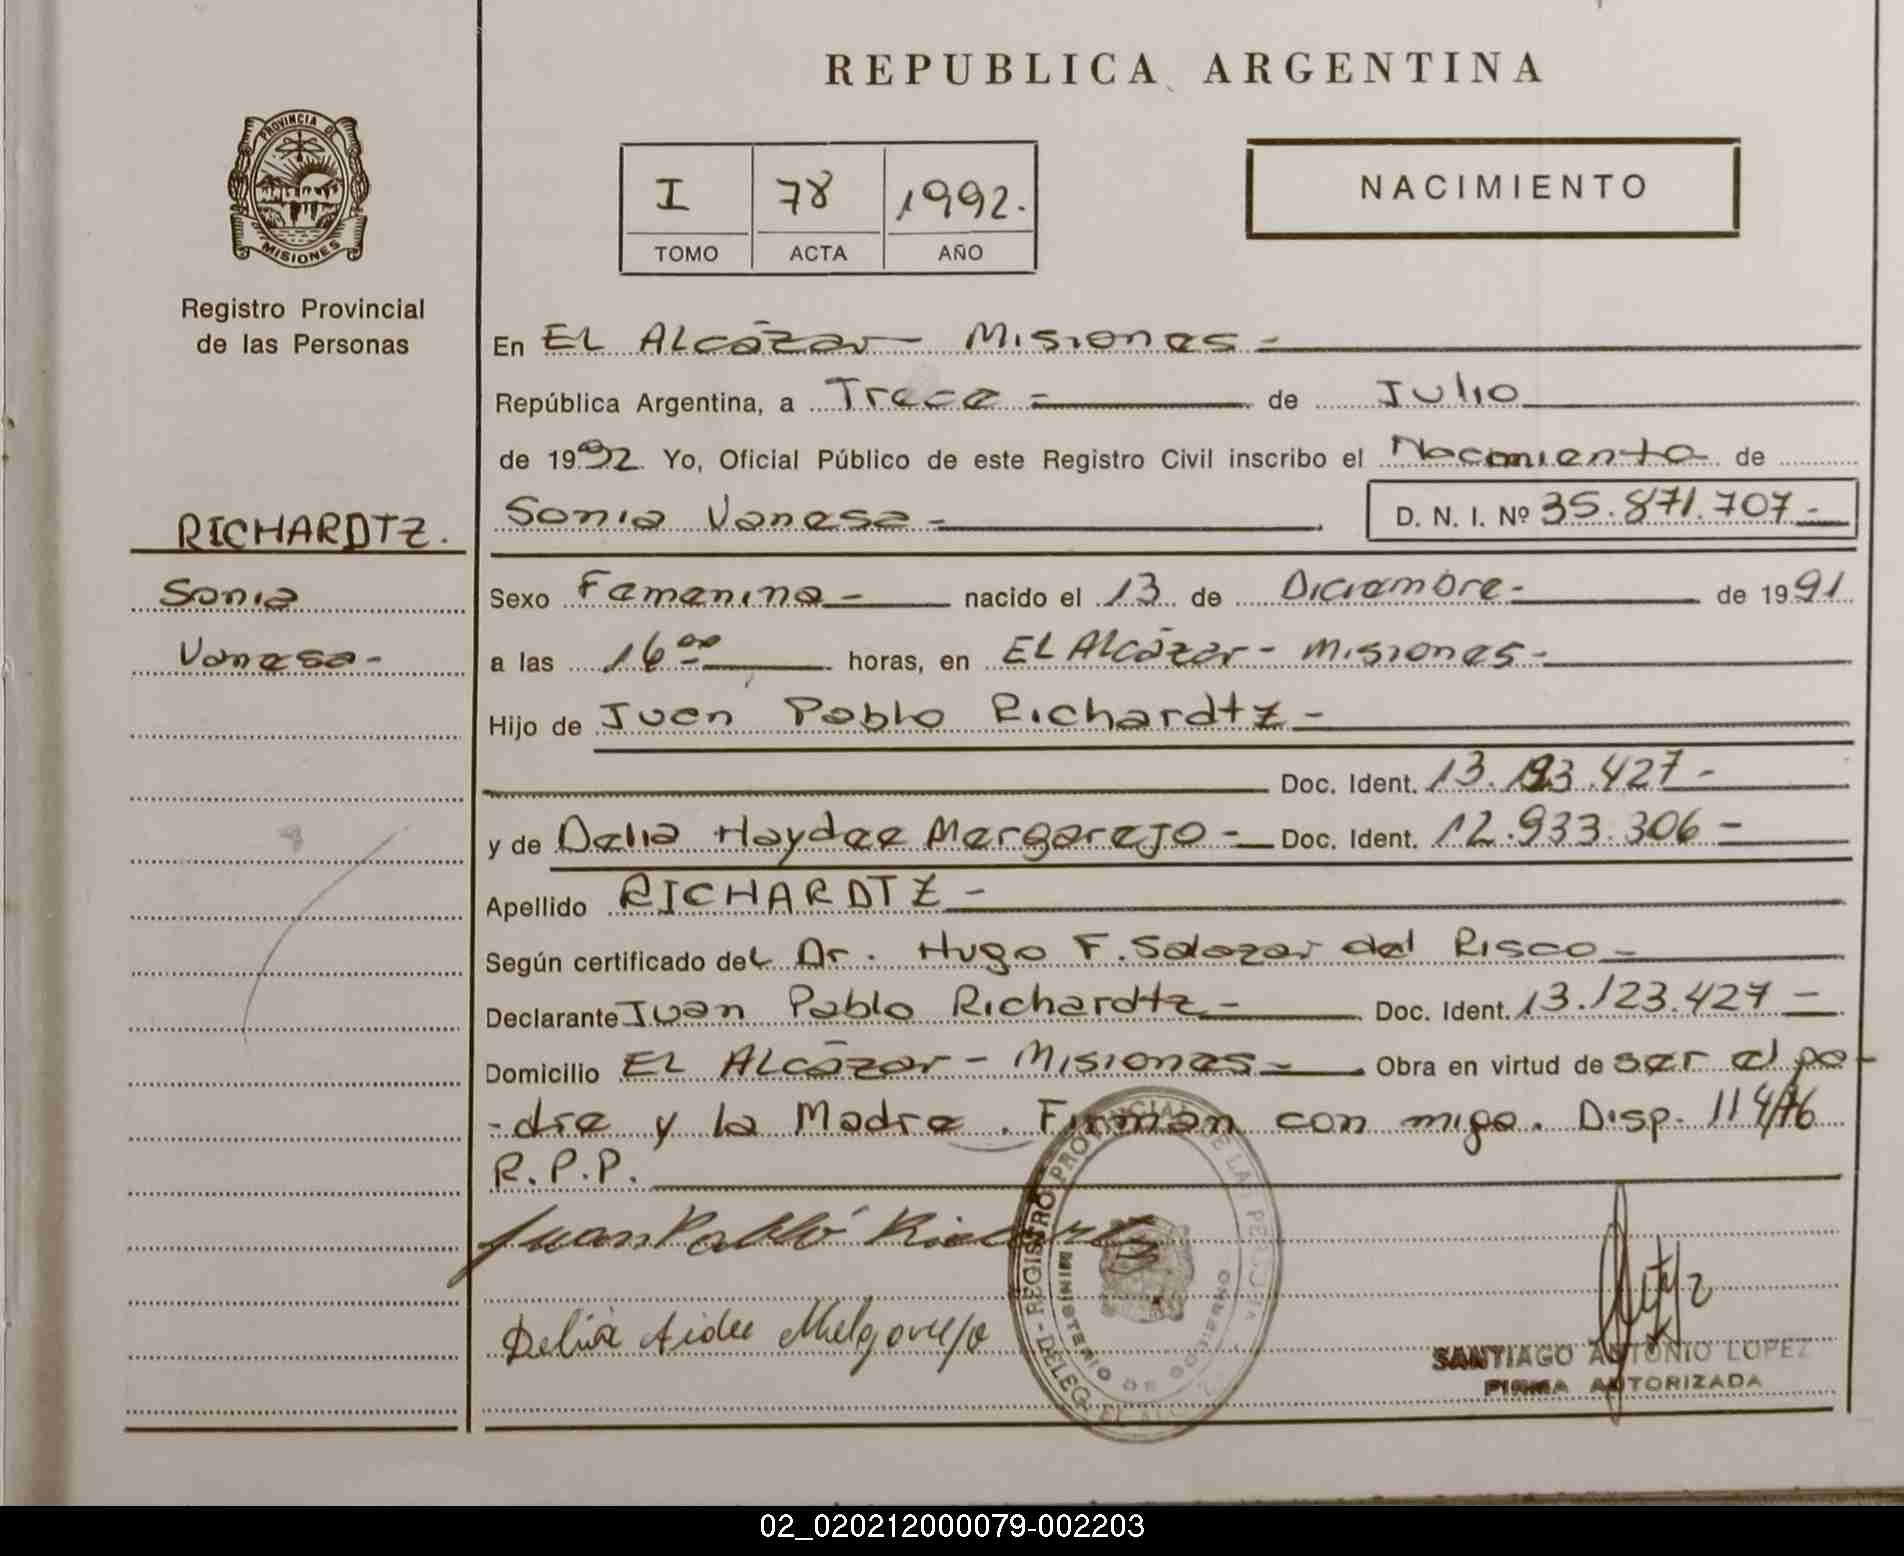 REPUBLICA ARGENTINA
PROVINCIA DE
MISIONES
Registro Provincial
de las Personas
I 78 1992.
TOMO ACTA AÑO
NACIMIENTO
En EL Alcázar - Misiones -
República Argentina, a Trece - de Julio
de 1992. Yo, Oficial Público de este Registro Civil inscribo el Nacimiento de
RICHARDTZ.
Sonia Vanesa -
D. N. I. Nº 35.871.707 -
Sonia
Vanesa -
Sexo Femenina - nacido el 13 de Diciembre - de 1991
a las 16 00 horas, en EL Alcázar - Misiones -
Hijo de Juan Pablo Richardtz -
Doc. Ident. 13.123.427 -
y de Delia Haydee Mergarejo - Doc. Ident. 12.933.306 -
Apellido RICHARDTZ -
Según certificado del Dr. Hugo F. Salazar del Risco -
Declarante Juan Pablo Richardtz - Doc. Ident. 13.123.427 -
Domicilio EL Alcázar - Misiones - Obra en virtud de ser el pa-
-dre y la Madre. Firman con migo. Disp. 114/76
R.P.P.
Juan Pablo Richardtz
Delia Aidee Melgarejo
REGISTRO PROVINCIAL DE LAS PERSONAS - DELEG. EL ALC
MINISTERIO DE GOBIERNO
SANTIAGO ANTONIO LOPEZ
FIRMA AUTORIZADA
02_020212000079-002203